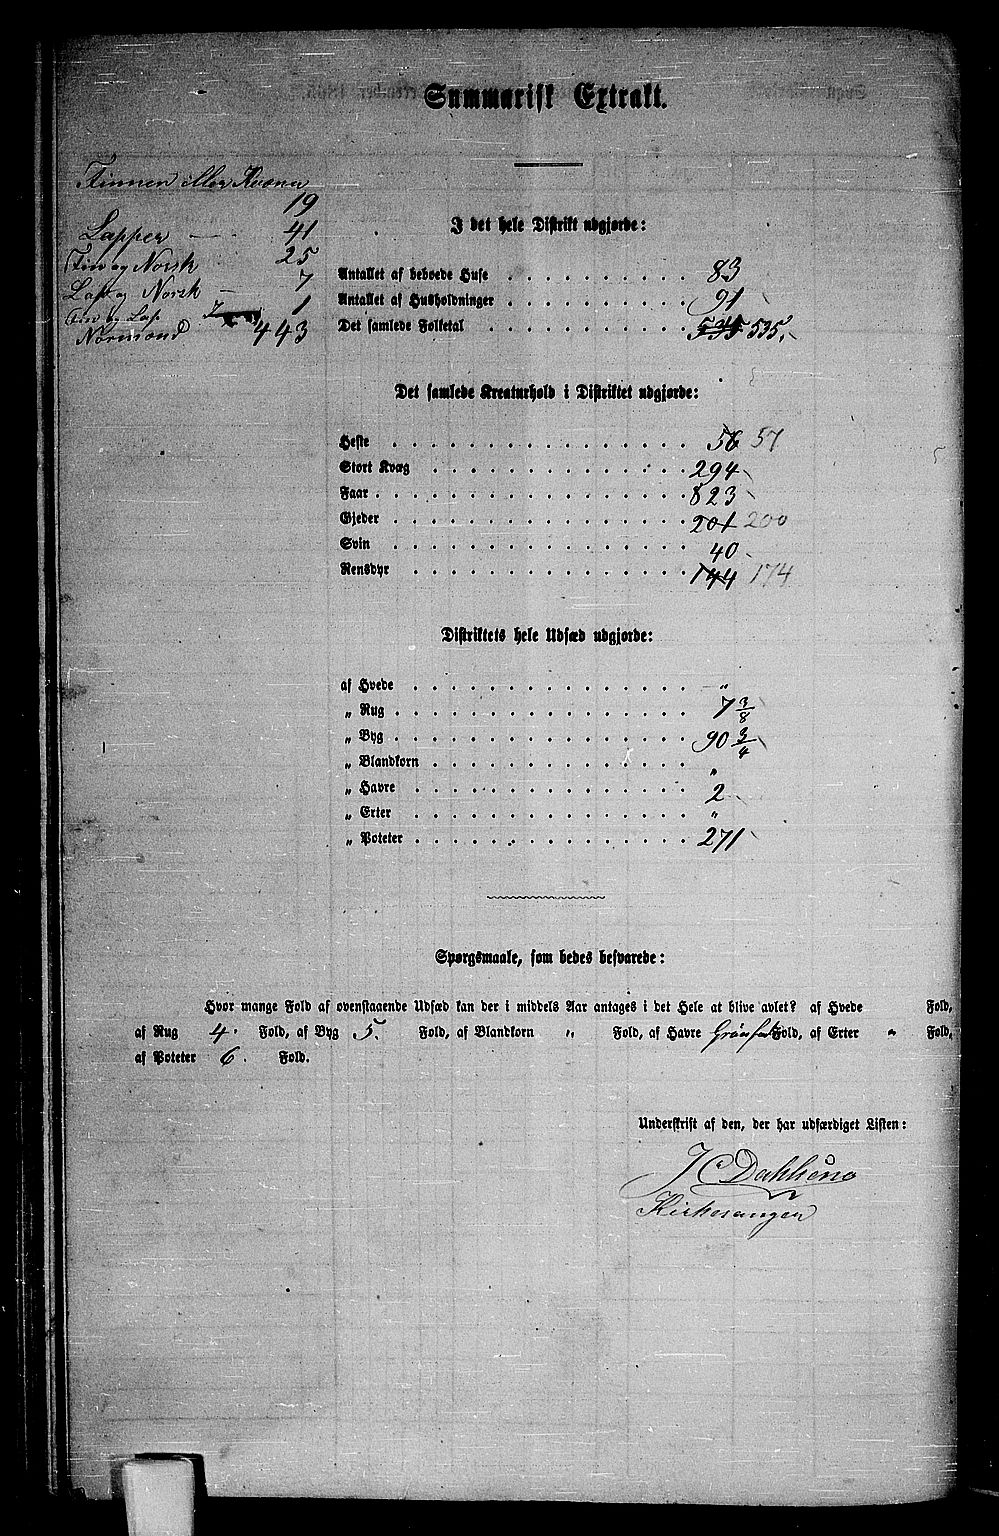 Summarisk Extrakt.
Finnen eller Kvæner
19
Lapper — 41
Fin og Norsk 25
Lap og Norsk — 7
Fin og Lap 1
Normænd 443
I det hele Distrikt udgjorde:
Antallet af beboede Huse 83
Antallet af Husholdninger 91
Det samlede Folketal 535 535.
Det samlede Kreaturhold i Distriktet udgjorde:
Heste 56 57
Stort Kvæg 294
Faar 823
Gjeder 201 200
Svin 40
Rensdyr 144 174
Distriktets hele Udsæd udgjorde:
af Hvede „
„ Rug 7 3/8
„ Byg 90 3/4
„ Blandkorn „
„ Havre 2
„ Erter „
„ Poteter 271
Spørgsmaale, som bedes besvarede:
Hvor mange Fold af ovenstaaende Udsæd kan der i middels Aar antages i det Hele at blive avlet? af Hvede Fold,
af Rug 4. Fold, af Byg 5. Fold, af Blandkorn „ Fold, af Havre Fold, af Erter „ Fold,
af Poteter 6. Fold.
Underskrift af den, der har udfærdiget Listen:
J C Dahl
Kirkesanger